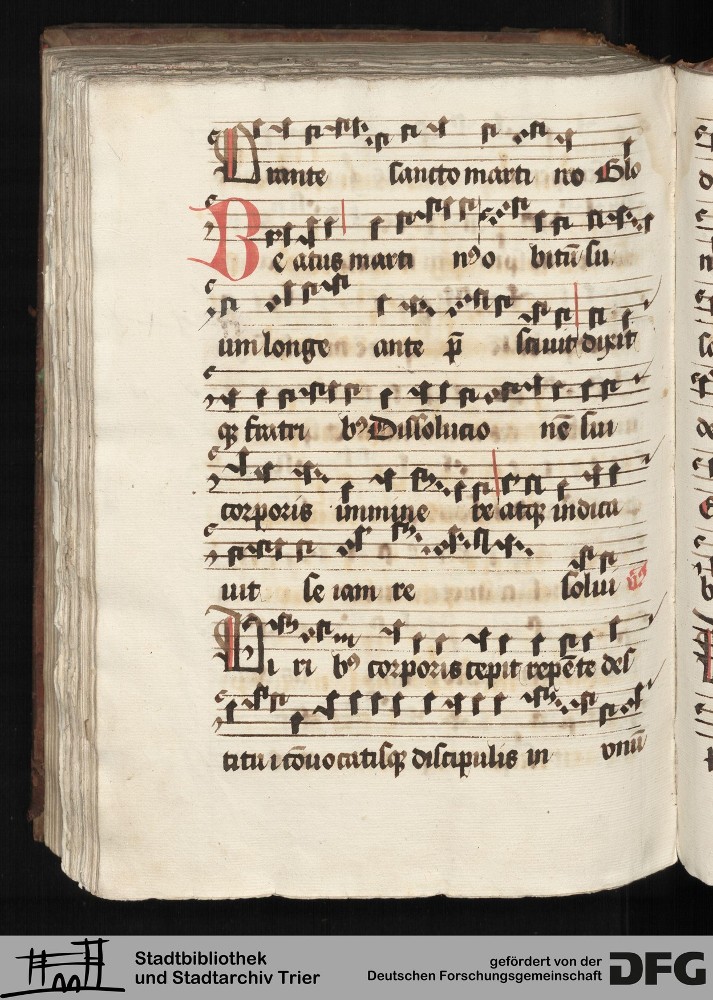 Orante sancto marti no Glo
Be atus marti n⁹ o bitū su
um longe ante p̄ sciuit dixit
q̨ fratri b⁹ Dissolucio nē sui
corporis immine re atq̨ indica
uit se iam re solui v̄s
Uiri b⁹ corporis cepit repēte des
titui cōuocatisq̨ discipulis in vnū
Stadtbibliothek
und Stadtarchiv Trier
gefördert von der
Deutschen Forschungsgemeinschaft
DFG